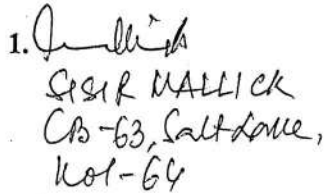 1.
SISIR MALLICK
CB-63, Salt Lake,
Kol-64